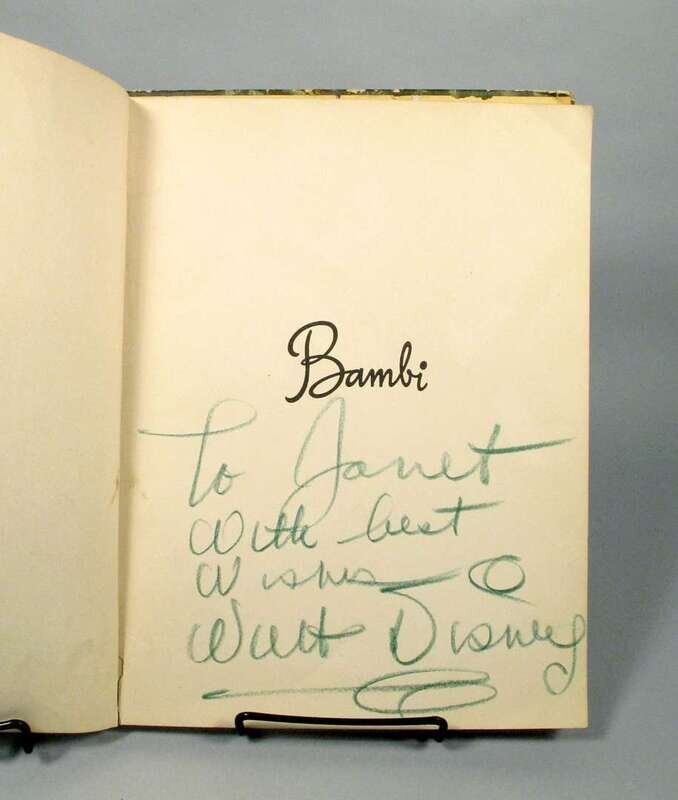 Bambi
To Janet
With best
Wishes
Walt Disney